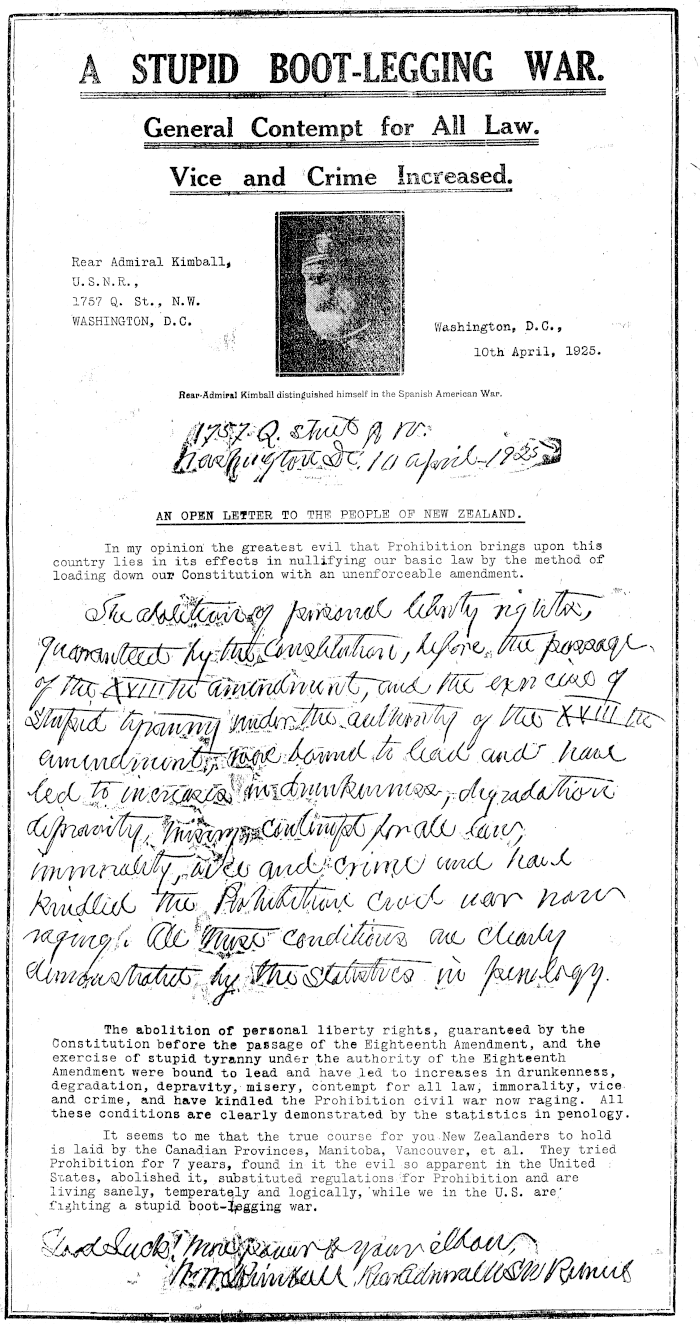 A STUPID BOOT-LEGGING WAR.
General Contempt for All Law.
Vice and Crime Increased.
Rear Admiral Kimball,
U.S.N.R.,
1757 Q. St., N.W.
WASHINGTON, D.C.
Washington, D.C.,
10th April, 1925.
Rear-Admiral Kimball distinguished himself in the Spanish American War.
1757 Q. street N W.
Washington D.C. 10 april 1925
AN OPEN LETTER TO THE PEOPLE OF NEW ZEALAND.
In my opinion the greatest evil that Prohibition brings upon this
country lies in its effects in nullifying our basic law by the method of
loading down our Constitution with an unenforceable amendment.
The abolition of personal liberty rights,
guaranteed by the Constitution, before the passage
of the XVIII th amendment, and the exercise of
stupid tyranny under the authority of the XVIII th
amendment, were bound to lead and have
led to increases in drunkenness, degradation
depravity, misery, contempt for all law,
immorality, vice and crime and have
kindled the Prohibition civil war now
raging. All these conditions are clearly
demonstrated by the statistics in penology.
The abolition of personal liberty rights, guaranteed by the
Constitution before the passage of the Eighteenth Amendment, and the
exercise of stupid tyranny under the authority of the Eighteenth
Amendment were bound to lead and have led to increases in drunkenness,
degradation, depravity, misery, contempt for all law, immorality, vice
and crime, and have kindled the Prohibition civil war now raging. All
these conditions are clearly demonstrated by the statistics in penology.
It seems to me that the true course for you New Zealanders to hold
is laid by the Canadian Provinces, Manitoba, Vancouver, et al. They tried
Prohibition for 7 years, found in it the evil so apparent in the United
States, abolished it, substituted regulations for Prohibition and are
living sanely, temperately and logically, while we in the U.S. are
fighting a stupid boot-legging war.
Good luck! More power to your elbow,
W. W. Kimball Rear Admiral USN Retired